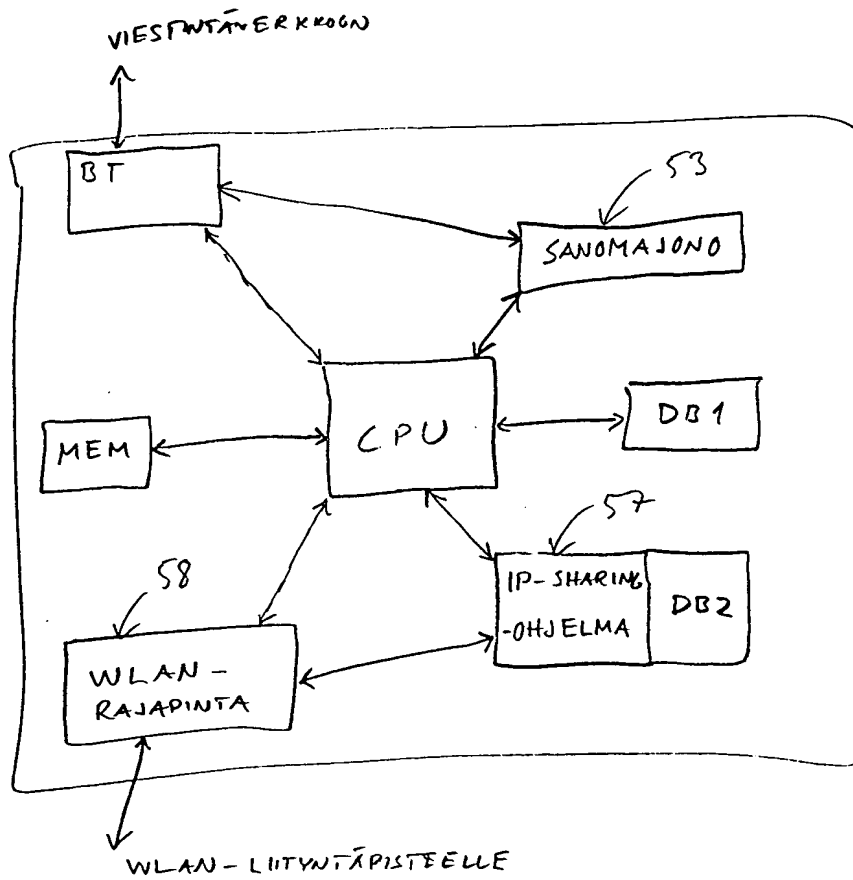 VIESTINTÄVERKKOON
BT
53
SANOMAJONO
CPU
DB1
MEM
57
58
IP-SHARING
-OHJELMA
DB2
WLAN-
RAJAPINTA
WLAN-LIITYNTÄPISTEELLE